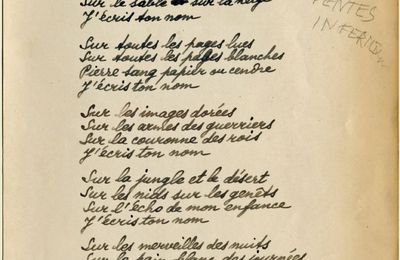 Sur le sable sur la neige
J'écris ton nom
Sur toutes les pages lues
Sur toutes les pages blanches
Pierre sang papier ou cendre
J'écris ton nom
Sur les images dorées
Sur les armes des guerriers
Sur la couronne des rois
J'écris ton nom
Sur la jungle et le désert
Sur les nids sur les genêts
Sur l'écho de mon enfance
J'écris ton nom
Sur les merveilles des nuits
Sur le pain blanc des journées